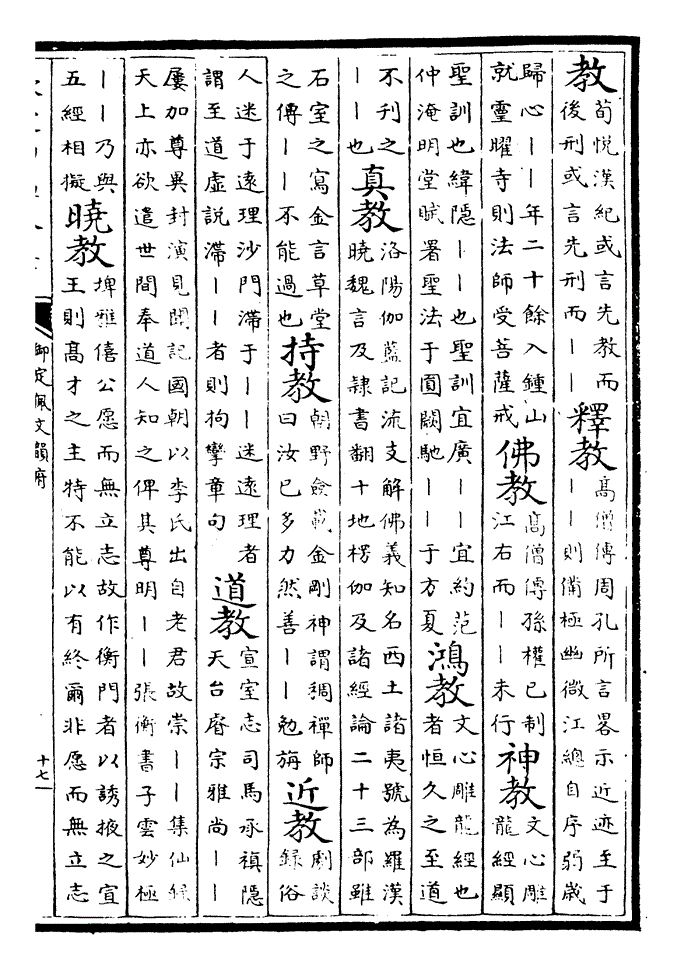 教荀悅漢紀或言先教而後刑或言先刑而丨丨釋教高僧傳周孔所言畧示近迹至于丨丨則備極幽微江總自序弱歲
歸心丨丨年二十餘入鍾山就靈曜寺則法師受菩薩戒佛教高僧傳孫權已制江右而丨丨未行神教文心雕龍經顯
聖訓也緯隱丨丨也聖訓宜廣丨丨宜約范仲淹明堂賦署聖法于圜闕馳丨丨于方夏鴻教文心雕龍經也者恒久之至道
不刊之丨丨也真教洛陽伽藍記流支解佛義知名西土諸夷號為羅漢曉魏言及隸書翻十地楞伽及諸經論二十三部雖
石室之寫金言草堂之傳丨丨不能過也持教朝野僉載金剛神謂稠禪師曰汝已多力然善丨丨勉旃近教劇談録俗
人迷于遠理沙門滯于丨丨迷遠理者謂至道虛説滯丨丨者則拘攣章句道教宣室志司馬承禎隱天台睿宗雅尚丨丨
屢加尊異封演見聞記國朝以李氏出自老君故崇丨丨集仙録天上亦欲遣世間奉道人知之俾其尊明丨丨張衡書子雲妙極
丨丨乃與五經相擬曉教埤雅僖公愿而無立志故作衡門者以誘掖之宣王則髙才之主特不能以有終爾非愿而無立志
御定佩文韻府
十七